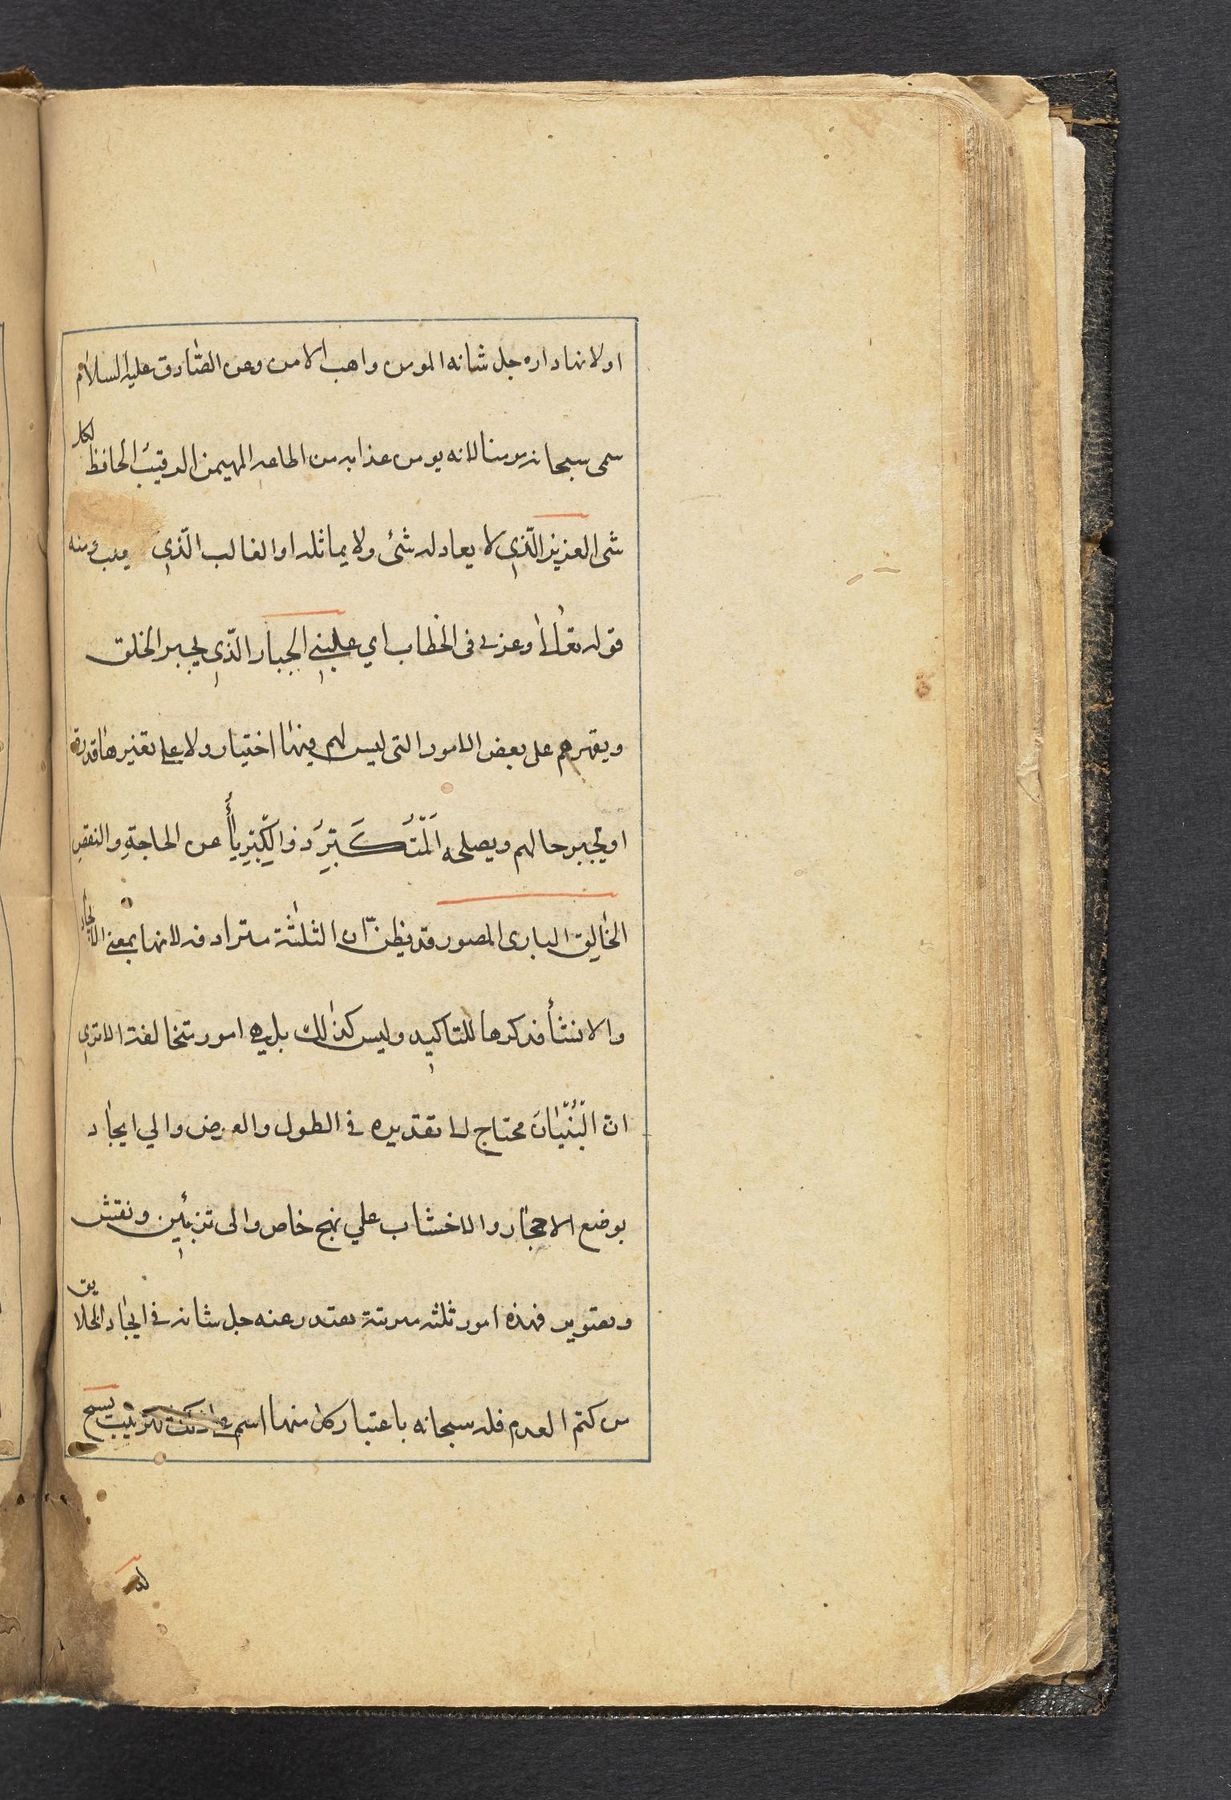 اولانها داره جل شانه المومن واهب الامن وعن الصّادق عليه السلام
سمى سبحانه مومنا لانه يومن عذابه من اطاعه المهيمن الرقيب الحافظ لكل
شى العزيز الّذي لا يعادله شئ ولا يماثله او الغالب الّذي ومنه
قوله تعالى وعزنى فى الخطاب اي غلبني الجبار الّذي يجبر الخلق
ويقهرهم على بعض الامور التى ليس لهم فيها اختيار ولا على تغيرها قدرة
او يجبر حالهم ويصلحه المُتَكَبّر ذو الكِبْرِيأء عن الحاجةِ والنقصِ
الخالِق البارى المصور قد يظن ان الثلثة مترادفه لانها بمعنى الايجاد
والانشأ فذكرها للتاكيد وليس كذالك بل هي امور متخالفة الاترى
ان البُنْيان محتاج الى تقديره فى الطول والعرض والي ايجاد
بوضع الاحجار والاخشاب علي نهج خاص والى تزيئين ونقش
وتصوير فهذه امور ثلثه مرتبة تصدر عنه جل شانه فى ايجاد الخلايق
من كتم العدم فله سبحانه باعتبار كل منها اسم على ذلك الترتيب يسبح
له